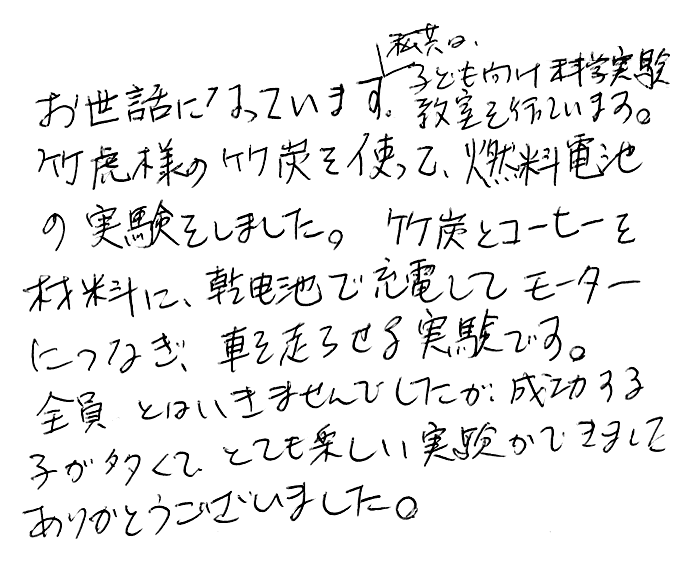 お世話になっています。
私共は、
子ども向け科学実験
教室を行ています。
竹虎様の竹炭を使って、燃料電池
の実験をしました。竹炭とコーヒーを
材料に、乾电池で充電してモーター
につなぎ、車を走らせる実験です。
全員とはいきませんでしたが、成功する
子が多くて、とても楽しい実験ができまして
ありがとうございました。